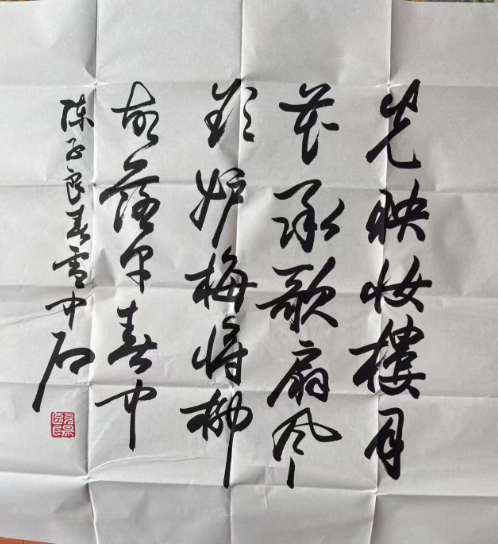 光映妆樓月
花承歌扇风
欲妒梅将柳
故落早春中
陈子良春雪中石